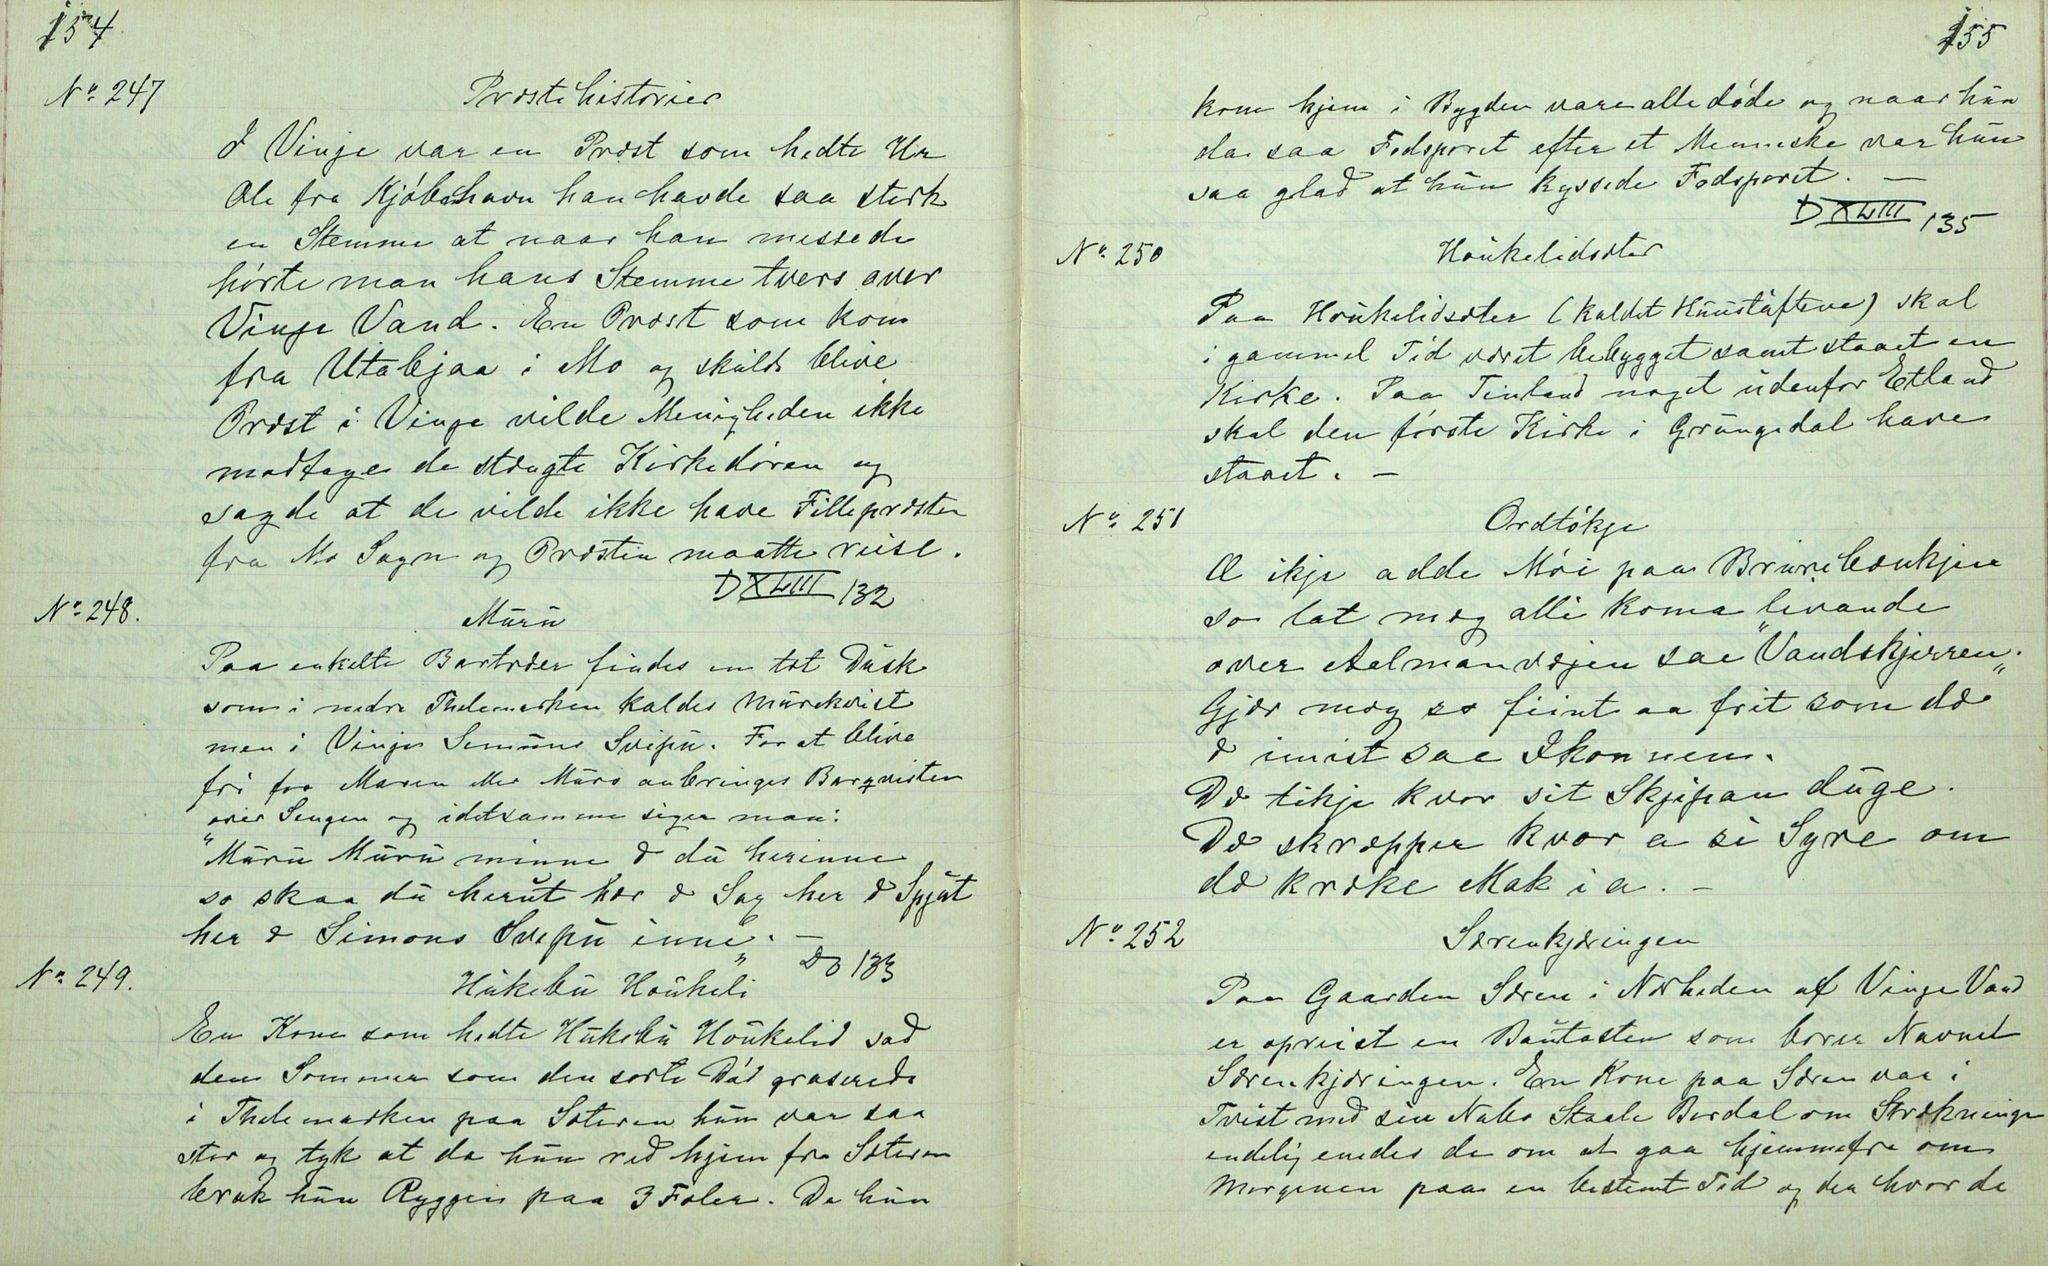 154
No 247 Præstehistorier
I Vinje var en Præst som hedte Hr
Ole fra Kjøbehavn han havde saa sterk
en Stemme at naar han messede
hørte man hans Stemme tvers over
Vinje Vand. En Præst som kom
fra Utabjaa i Mo og skulde blive
Præst i Vinje vilde Menigheden ikke
modtage de stængte Kirkedøren og
sagde at de vilde ikke have Fillepræsten
fra Mo Sogn og Præsten maatte reise.
DXLIII 132
No 248. Muru
Paa enkelte Bartræer findes en tæt Dusk
som i nedre Thelemarken kaldes Murekvist
men i Vinje Simuns Svipu. For at blive
fri for Maren eller Muro anbringes Barqvisten
over Sengen og idetsamme siger man:
"Muru Muru minne æ du herinne
so skaa du herut her æ Sag her æ Spjut
her æ Simons Svipu inne". —
Do 133
No 249. Hukebu Houkeli
En Kone som hedte Hukebu Houkelid sad
den Sommer som den sorte Død graserede
i Thelemarken paa Sæteren hun var saa
stor og tyk at da hun red hjem fra Sæteren
brak hun Ryggen paa 3 Foler. Da hun
155
kom hjem i Bygden vare alle døde og naar hun
da saa Fodsporet efter et Menneske var hun
saa glad at hun kyssede Fodsporet. —
DXLIII 135
No 250 Houkelidsæter
Paa Houkelidsæter (kaldet Huustuftene) skal
i gammel Tid været bebygget samt staaet en
Kirke. Paa Tinland noget udenfor Edland
skal den første Kirke i Grungedal have
staaet. —
No 251 Ordtøkje
Æ ikje adde Møi paa Brurebænkjen
so lat meg alli koma livande
over Aalmanvegen sae "Vandskjerren".
Gjær meg so fiint aa frit som dæ
æ innist sae Ikonnen.
Dæ tikje kvor sit Skjipan duge.
Dæ skræpper kvor a si Syre om
dæ kræke Mak i a. —
No 252 Særenkjæringen
Paa Gaarden Særen i Nærheden af Vinje Vand
er opreist en Bautasten som bærer Navnet
Særenkjæringen. En Kone paa Særen var i
Tvist med sin Nabo Staale Bordal om Strækninge
endelig enedes de om at gaa hjemmefra om
Morgenen paa en bestemt Tid og der hvor de